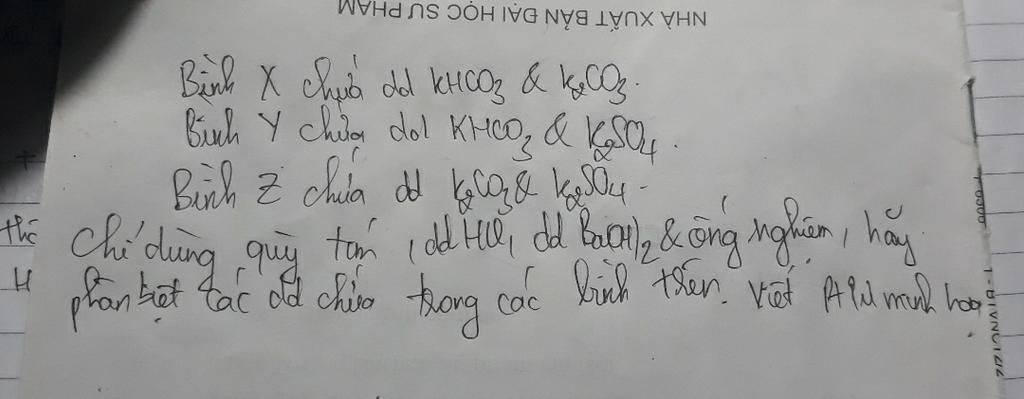 NHÀ XUẤT BẢN ĐẠI HỌC SƯ PHẠM
Bình X chứa dd KHCO3 & K2CO3.
Bình Y chứa dd KHCO3 & K2SO4.
Bình Z chứa dd K2CO3 & K2SO4.
Chỉ dùng quỳ tím, dd HCl, dd Ba(OH)2 & ống nghiệm, hãy
phân biệt các dd chứa trong các bình trên. Viết PTPU minh hoạ.